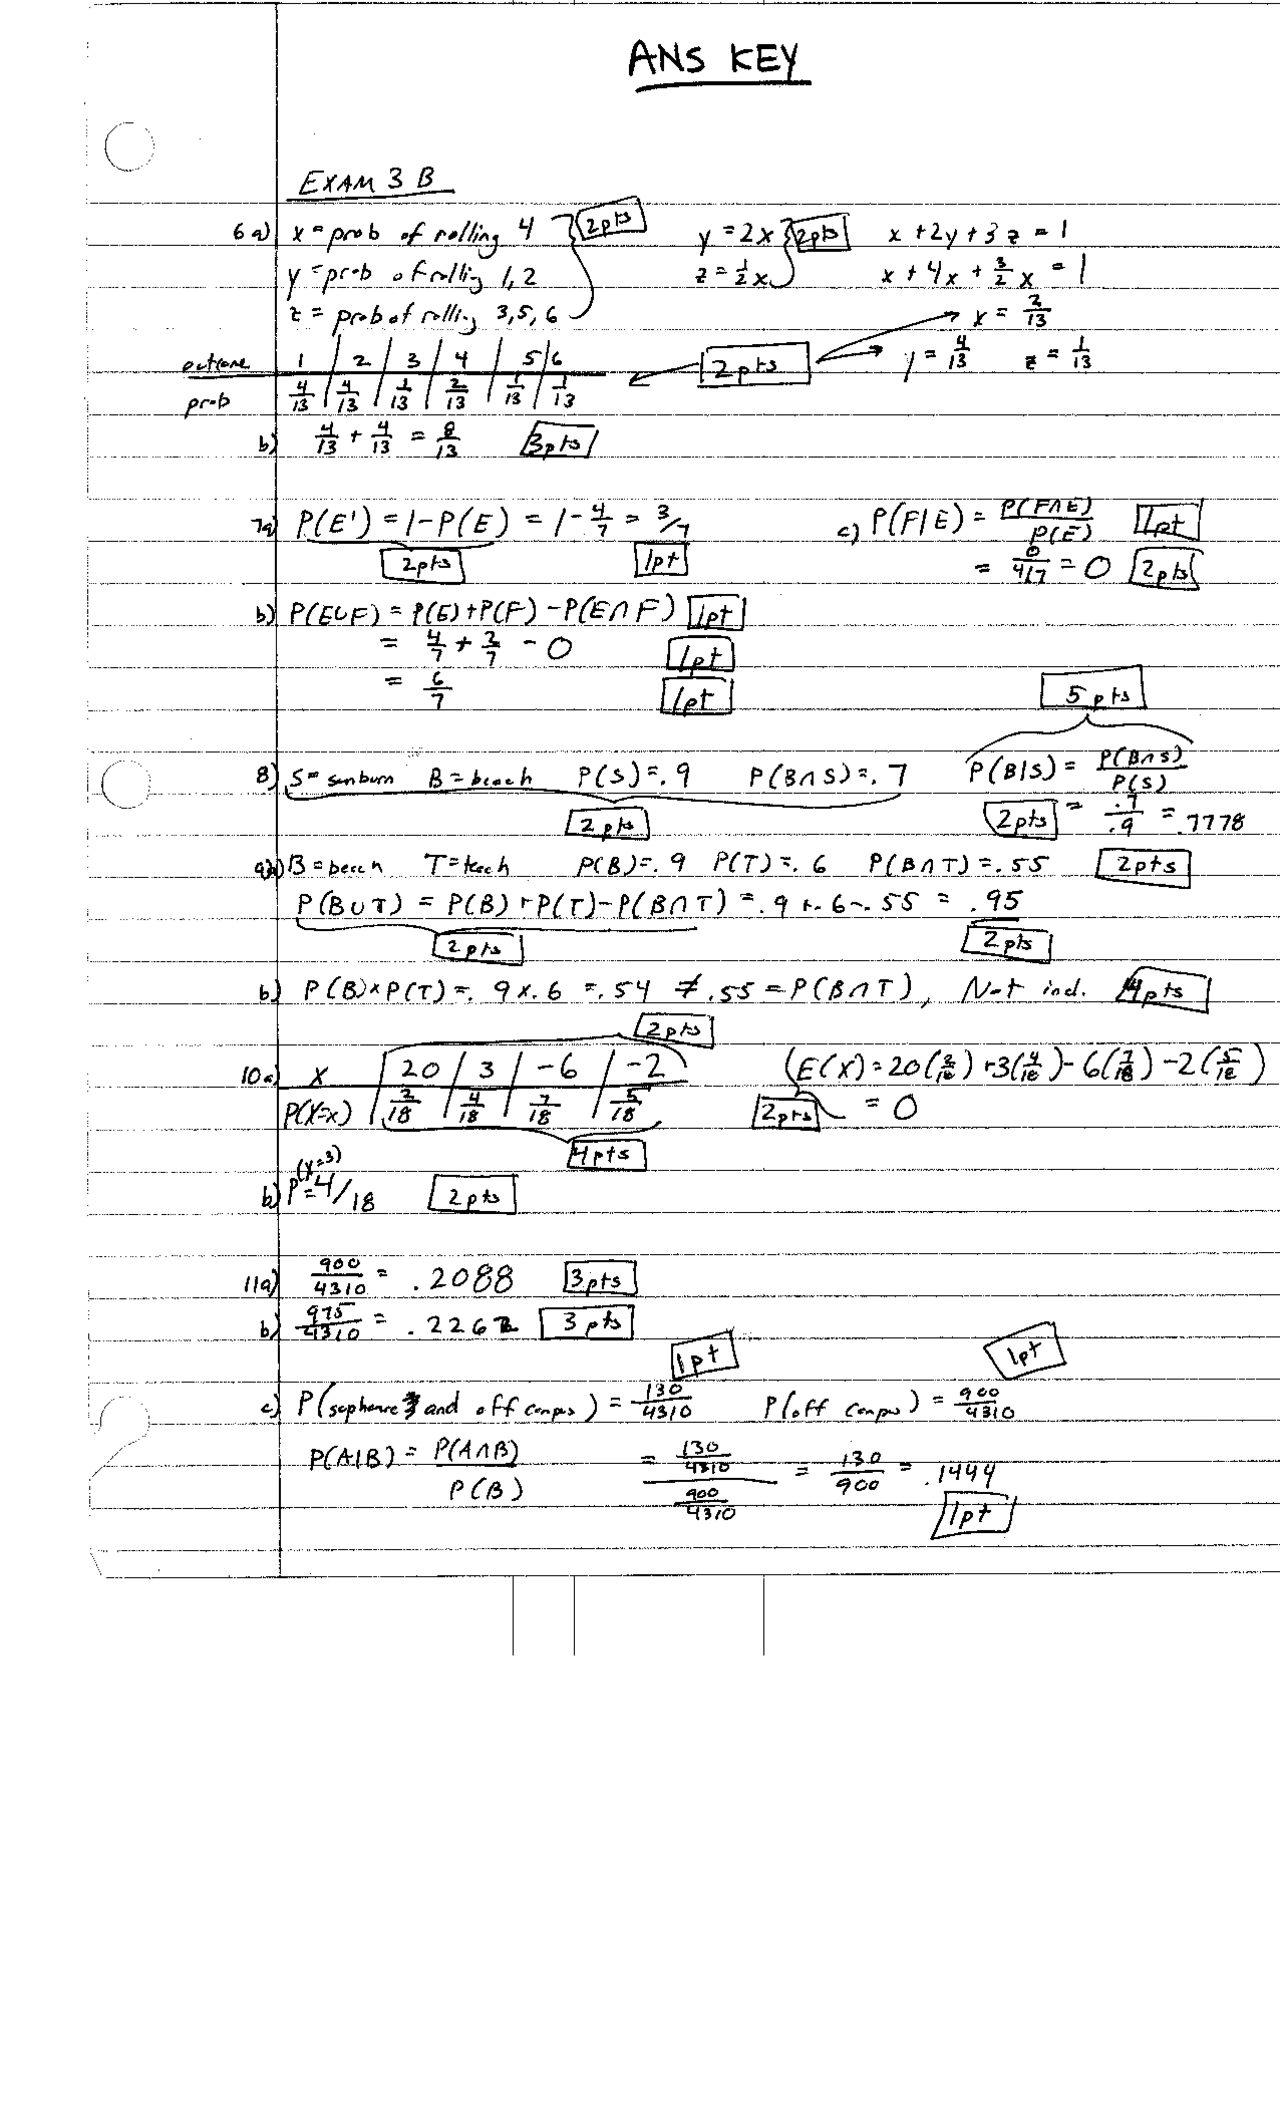 ANS KEY
EXAM 3 B
6 a) x = prob of rolling 4 2pts y = 2x 2pts x + 2y + 3z = 1
y = prob of rolling 1, 2 z = 1/2 x x + 4x + 3/2 x = 1
z = prob of rolling 3, 5, 6 x = 2/13
outcome 1 2 3 4 5 6 2pts y = 4/13 z = 1/13
prob 4/13 4/13 1/13 2/13 1/13 1/13
b) 4/13 + 4/13 = 8/13 3pts
7a) P(E') = 1 - P(E) = 1 - 4/7 = 3/7 c) P(F|E) = P(F∩E)/P(E) 1pt
2pts 1pt = 0/4/7 = 0 2pts
b) P(E∪F) = P(E) + P(F) - P(E∩F) 1pt
= 4/7 + 2/7 - 0 1pt
= 6/7 1pt
5 pts
8) S = sunburn B = beach P(S) = .9 P(B∩S) = .7 P(B|S) = P(B∩S)/P(S)
2pts 2pts = .7/.9 = .7778
9a) B = beach T = teach P(B) = .9 P(T) = .6 P(B∩T) = .55 2pts
P(B∪T) = P(B) + P(T) - P(B∩T) = .9 + .6 - .55 = .95
2pts 2pts
b) P(B) × P(T) = .9 × .6 = .54 ≠ .55 = P(B∩T), Not ind. 4pts
2pts
10a) X 20 3 -6 -2 E(X) = 20(2/18) + 3(4/18) - 6(7/18) - 2(5/18)
P(X=x) 2/18 4/18 7/18 5/18 2pts = 0
4pts
b) P(X=3) = 4/18 2pts
11a) 900/4310 = .2088 3pts
b) 975/4310 = .2262 3 pts
1pt 1pt
c) P(sophomore and off campus) = 130/4310 P(off campus) = 900/4310
P(A|B) = P(A∩B)/P(B) = 130/4310 / 900/4310 = 130/900 = .1444
1pt